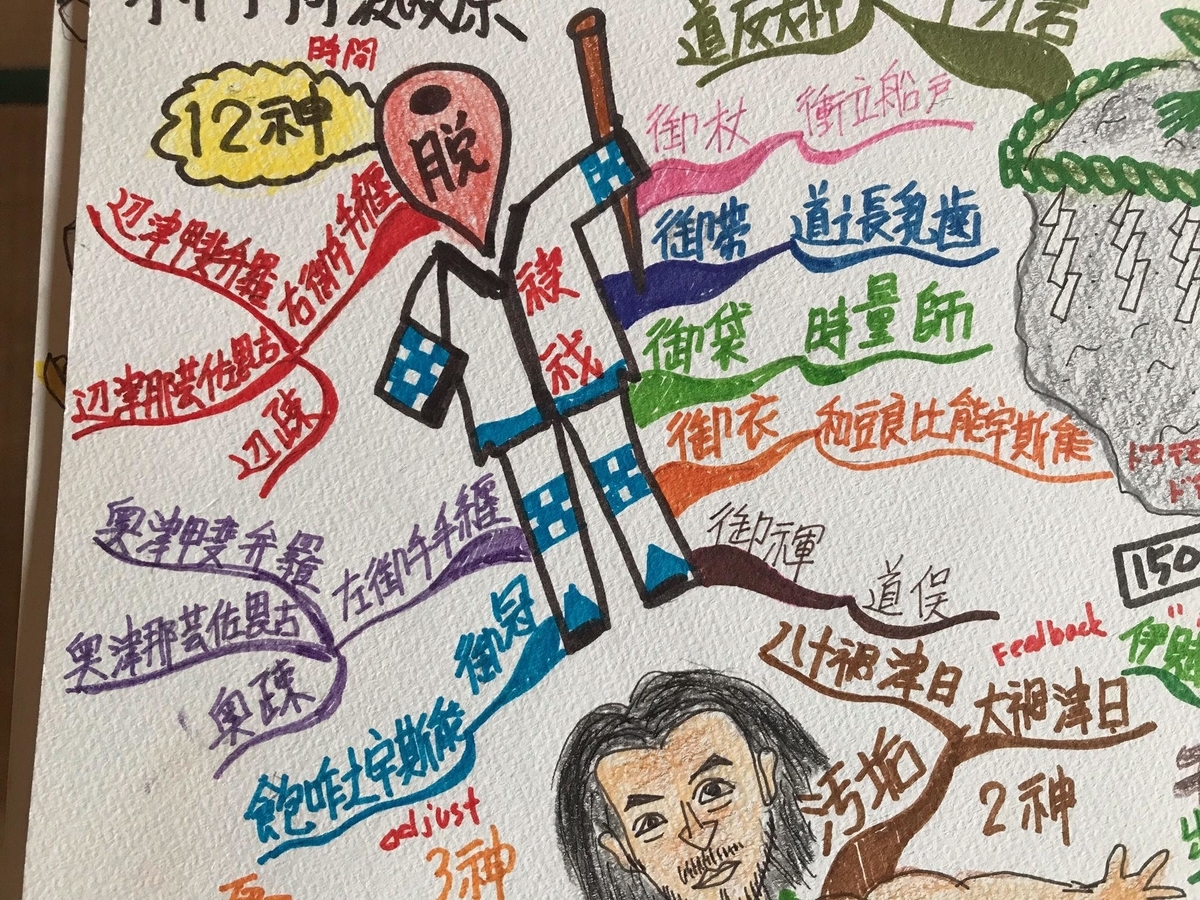 時間
12神
脱
禊
祓
御杖
衝立船戸
御帯
道之長乳歯
御袋
時量師
御衣
和豆良比能宇斯能
御褌
道俣
右御手手纒
辺津甲斐弁羅
辺津那芸佐毘古
辺疎
左御手手纒
奥津甲斐弁羅
奥津那芸佐毘古
奥疎
御冠
飽咋之宇斯能
adjust
3神
道反大神
八十禍津日
大禍津日
汚垢
2神
Feedback
150